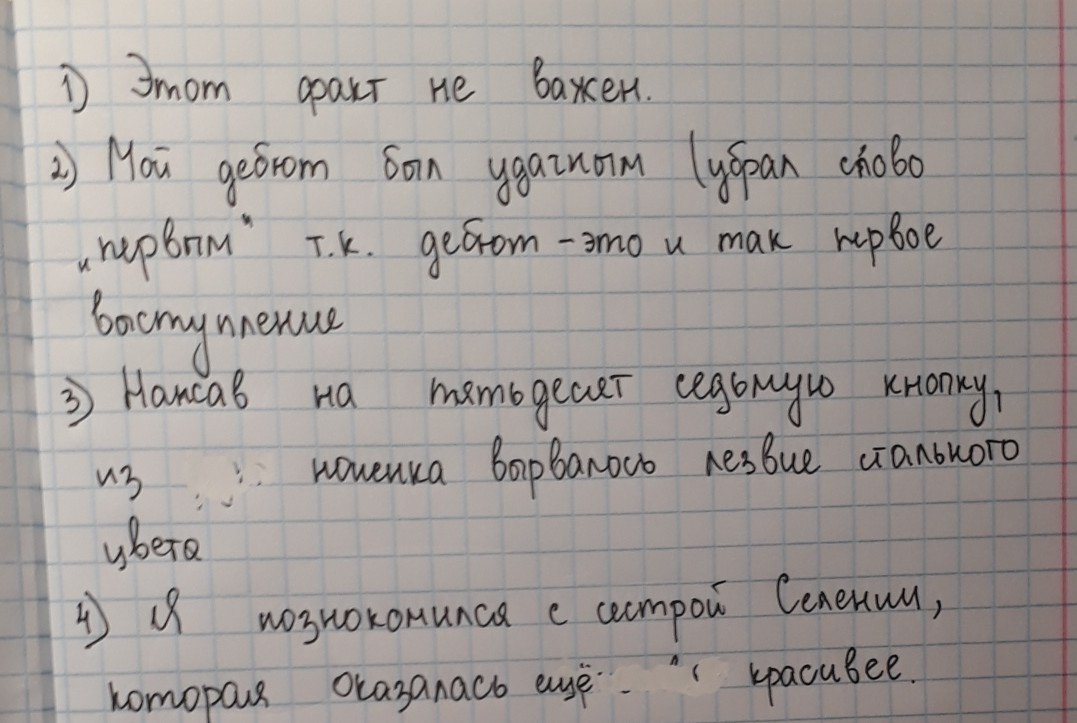 1) Этот факт не важен.
2) Мой дебют был удачным (убрал слово
„первым" т.к. дебют - это и так первое
выступление
3) Нажав на пятьдесят седьмую кнопку,
из ноженка вырвалось лезвие стального
цвета
4) Я познокомился с сестрой Селении,
которая оказалась ещё красивее.